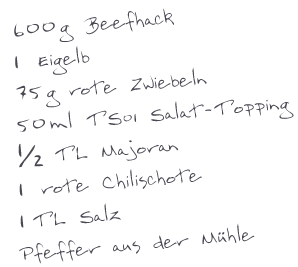 600g Beefhack
1 Eigelb
75 g rote Zwiebeln
50ml TSOI Salat-Topping
1/2 TL Majoran
1 rote Chilischote
1 TL Salz
Pfeffer aus der Mühle